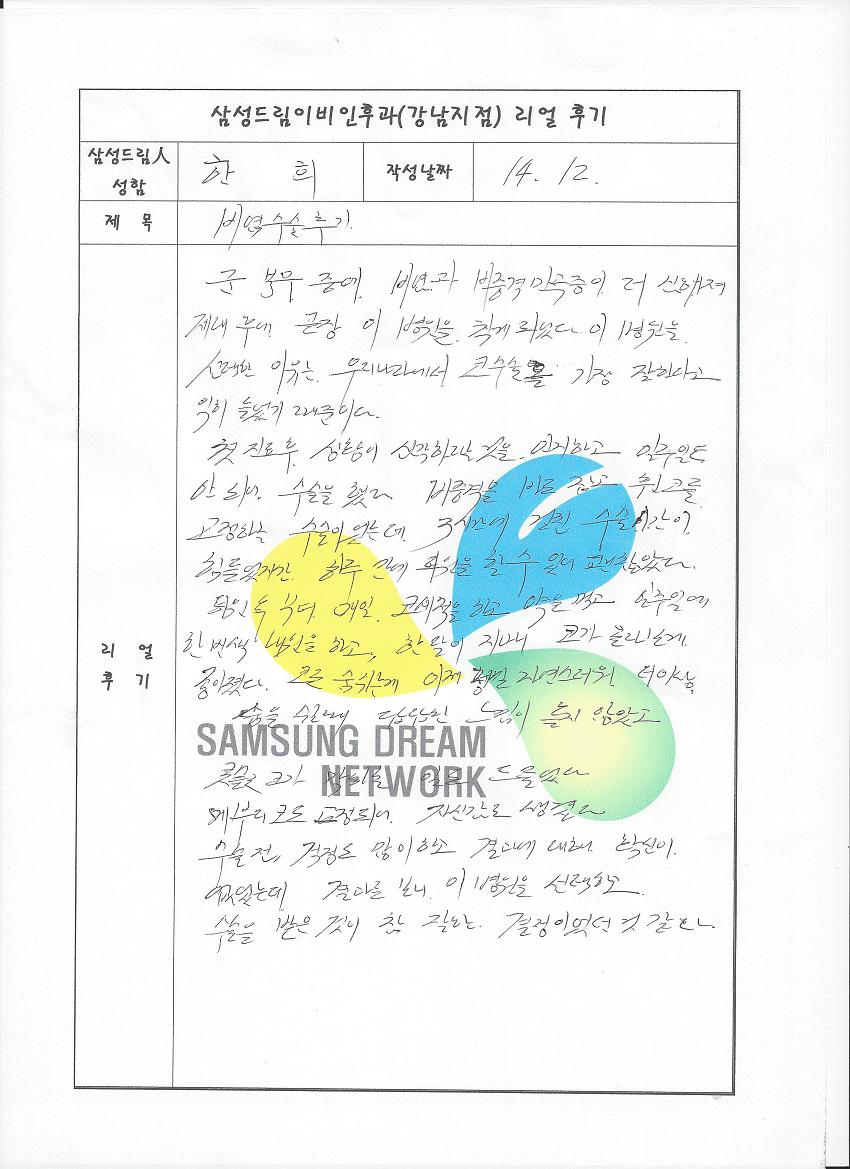 삼성드림이비인후과(강남지점) 리얼 후기
삼성드림人
성함
한 희
작성날짜
14. 12.
제 목
비염수술후기
리 얼
후 기
군 복무 중에 비염과 비중격만곡증이 더 심해져
제대 후에 곧장 이 병원을 찾게 되었다. 이 병원을
선택한 이유는 우리나라에서 코수술을 가장 잘한다고
익히 들었기 때문이다.
첫 진료 후 상황이 심각하다는 것을 인지하고 일주일도
안 되어 수술을 했다. 비중격을 바로 잡고 휜코를
교정하는 수술이었는데 3시간에 걸친 수술시간이
힘들었지만 하루 만에 퇴원을 할 수 있어 괜찮았다.
퇴원 후 부터 매일 코세척을 하고 약을 먹고 일주일에
한 번씩 내원을 하고, 한 달이 지나니 코가 몰라보게
좋아졌다. 코로 숨쉬는게 이제 정말 자연스러워 더이상
숨을 쉬는데 답답한 느낌이 들지 않았고
콧물 코가 드물었다
매부리코도 교정되어 자신감도 생겼다
수술 전, 걱정도 많이하고 결과에 대해 확신이
없었는데 결과를 보니 이 병원을 선택하고
수술을 받은 것이 참 잘한 결정이었던 것 같다.
SAMSUNG DREAM
NETWORK